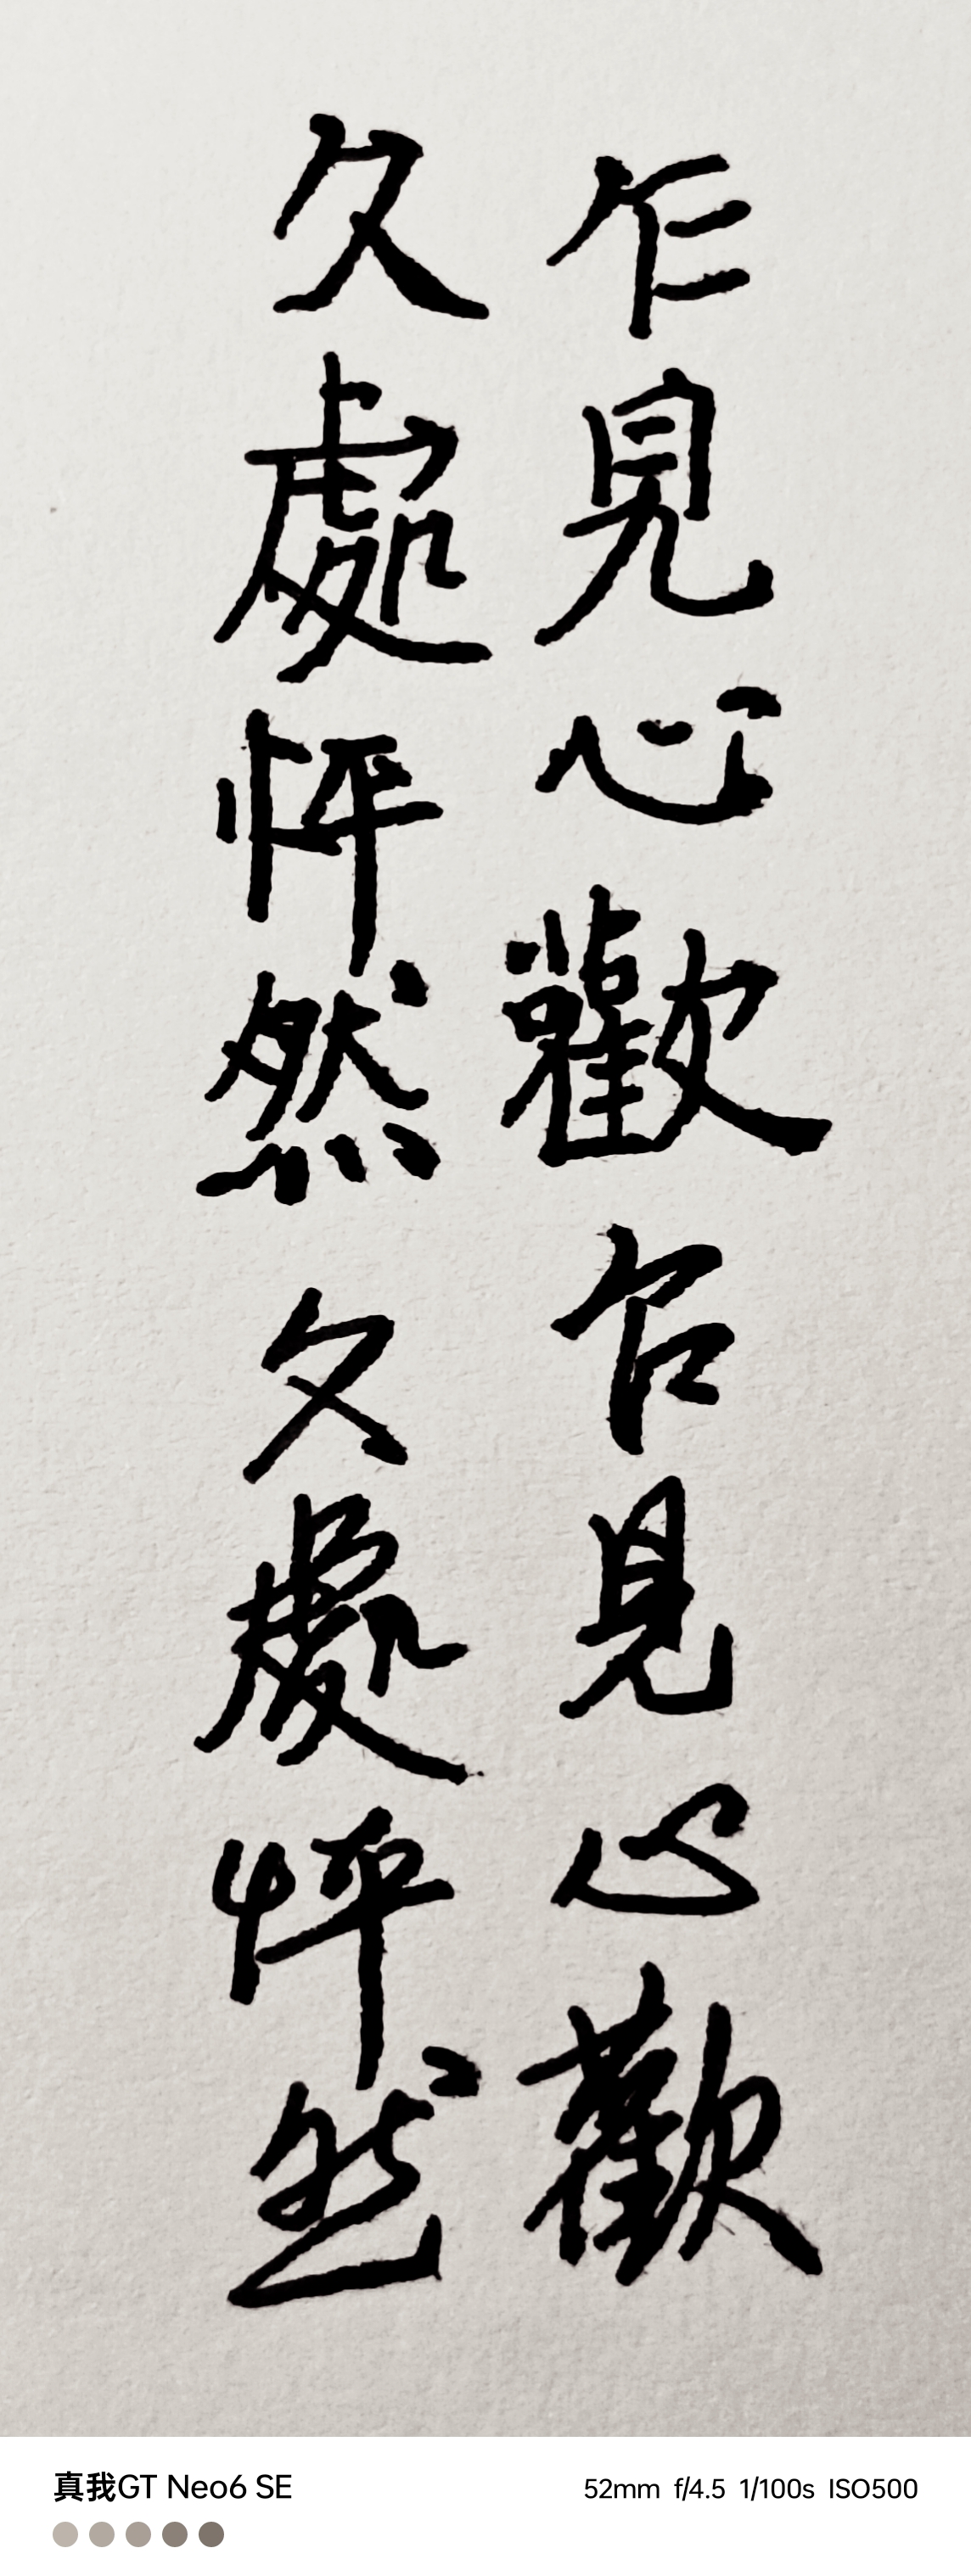 乍見心歡乍見心歡
久處怦然久處怦然
真我GT Neo6 SE
52mm f/4.5 1/100s ISO500